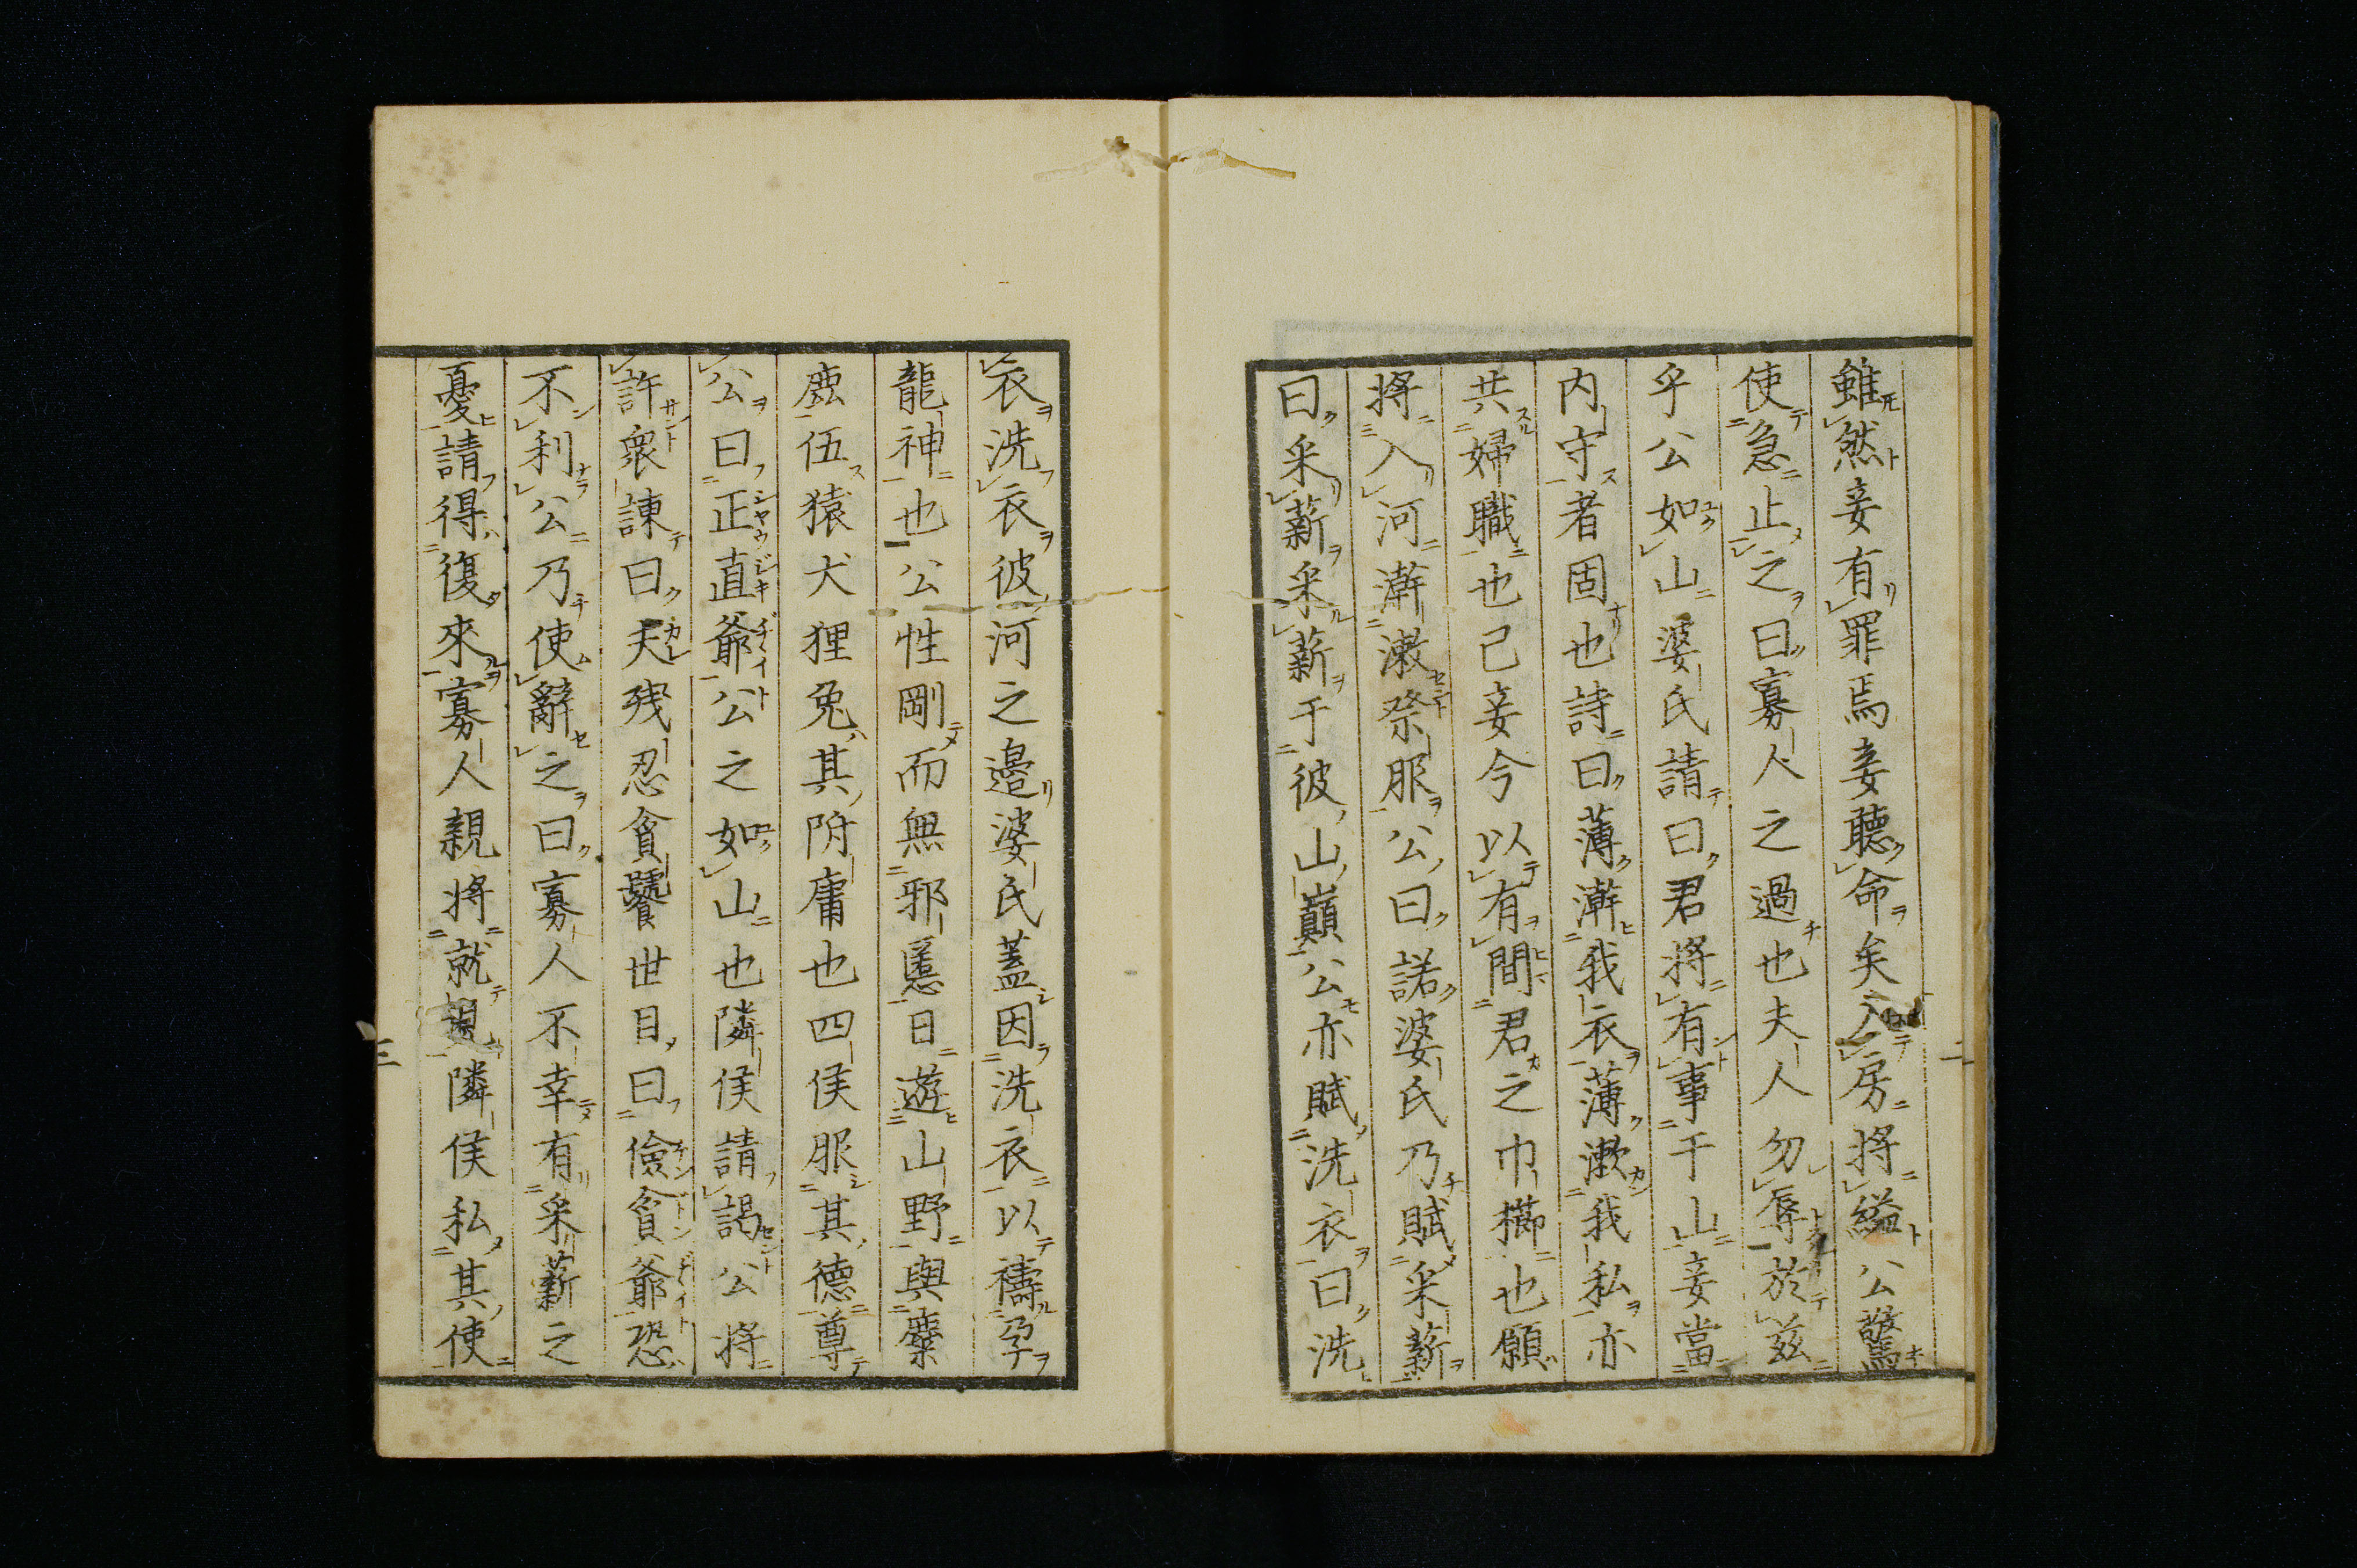 雖然妾有罪焉妾聽命矣入房將縊公驚
使急止之曰寡人之過也夫人勿辱於茲
乎公如山婆氏請曰君將有事于山妾當
内守者固也詩曰薄澣我衣薄漱我私亦
共婦職也己妾今以有間君之巾櫛也願
將入河澣漱祭服公曰諾婆氏乃賦采薪
曰采薪采薪于彼山巓公亦賦洗衣曰洗
衣洗衣彼河之邉婆氏蓋因洗衣以禱孕
龍神也公性剛而無邪慝日遊山野與麋
鹿伍猿犬狸兔其附庸也四侯服其德尊
公曰正直爺公之如山也隣侯請謁公將
許衆諫曰夫残忍貪饕世目曰儉貪爺恐
不利公乃使辭之曰寡人不幸有采薪之
憂請得復來寡人親將就見隣侯私其使
二
三